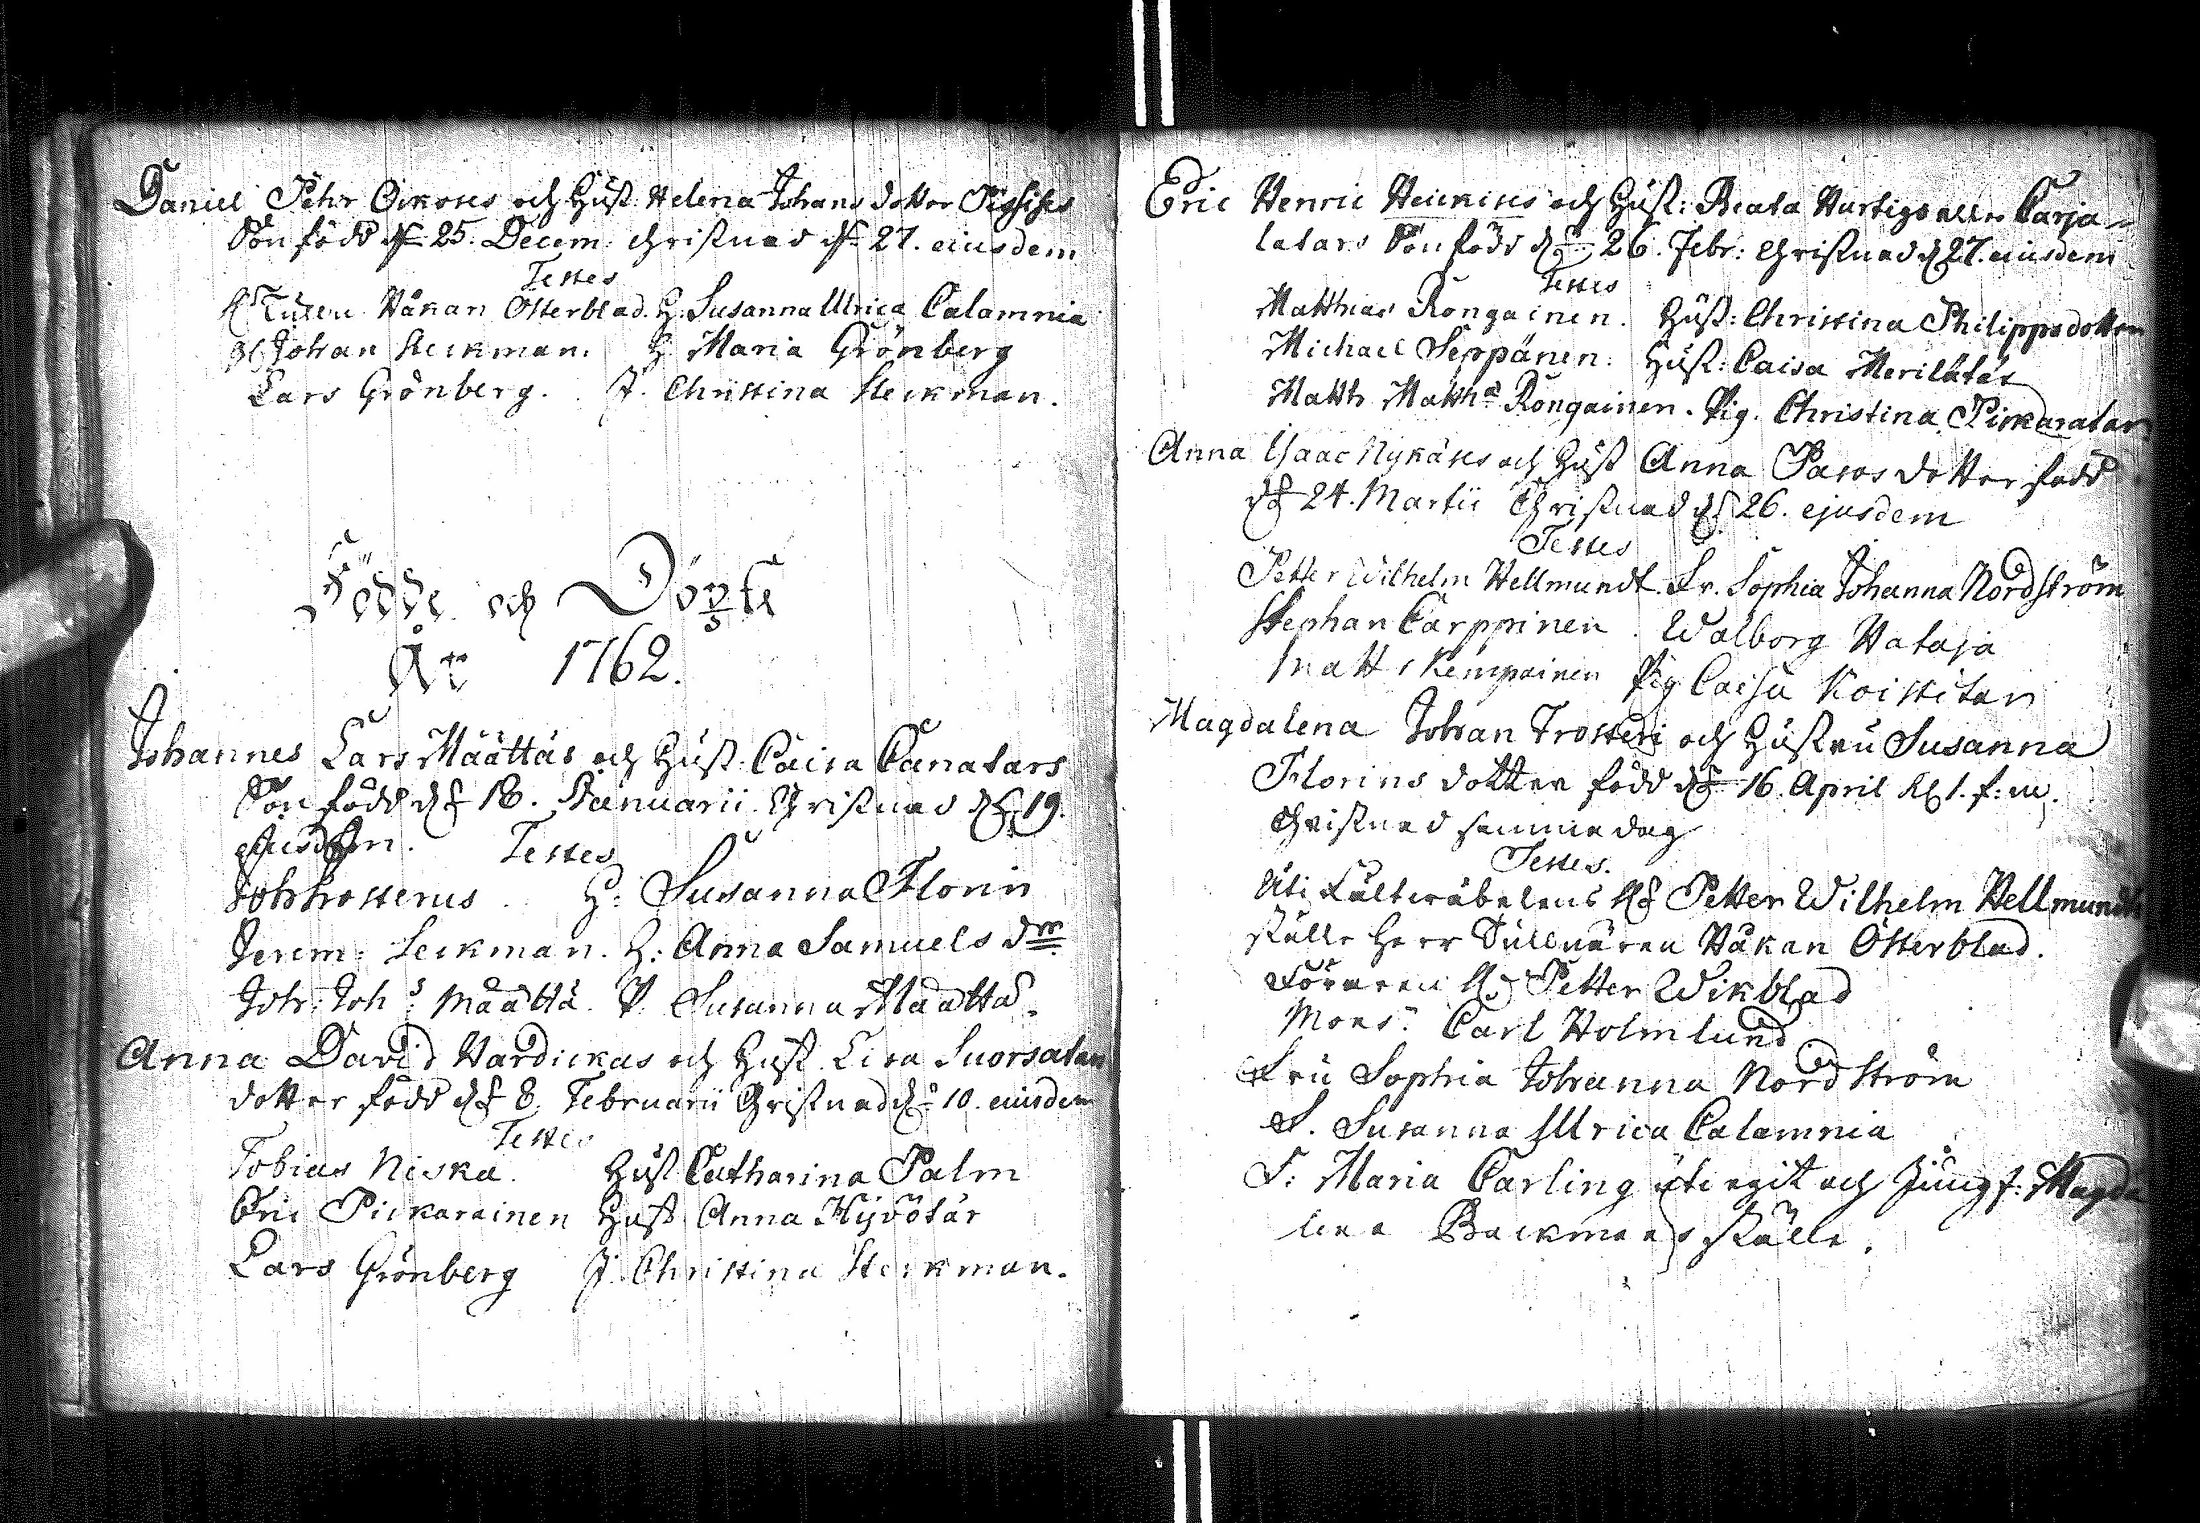 Daniel Pehr Oikoses och Hust: Helena Johans dotter
Son född d. 25. Decem: Christnad d. 27. eiusdem
Testes
Håkan Österblad. H. Susanna Ulrica Calamnia
Johan Steckman. H Maria Grönberg
Lars Grönberg. J. Christina Steckman.
Födde och Döpte
År 1762.
Johannes Lars Määttäs och Hust. Caisa Canatars
Son född d. 18. Januarii Christnad d. 19.
ejusdem. Testes
H: Susanna Florin
Jerem: Steckman. H: Anna Samuels dr
Joh: Joh: s Määttä. P. Susanna Määttä.
Anna David Hardickas och Hust. Lisa Suorsatar
dotter född d. 8. Februarii Christnad d. 10. eiusdem
Testes
Tobias Niska. Hust Catharina Palm
Eric Pickarainen Hust Anna Hyvötär
Lars Grönberg J. Christina Steckman.
Eric Henric Heickises och Hust: Beata Hartigs eller Carja-
latars Son född d. 26. Febr: Christnad d. 27. eiusdem
Testes
Matthias Rongainen. Hust: Christina Philippsdotter
Michael Seppänen. Hust: Caisa Merilätär
Matth. Matths Rongainen. Pig. Christina Pickaratar
Anna Isaac Nykäses och Hust Anna Pasos dotter född
d. 24. Martii Christnad d. 26. ejusdem
Testes
Petter Wilhelm Hellmundt. Fr. Sophia Johanna Nordström
Stephan Carppinen. Walborg Hataja
Matts Kemppainen Pig Caisa Koistitar
Magdalena Johan Trosteri och Hustru Susanna
Florins dotter född d. 16. April kl. 1. f: m.
Christnad samma dag
Testes.
Uti Fältwäbelens H. Petter Wilhelm Hellmundts
ställe Herr Tullnären Håkan Österblad.
Föraren H. Petter Wikblad
Mons: Carl Holmlund
Fru Sophia Johanna Nordström
F. Susanna Ulrica Calamnia
F: Maria Carling uti egit och Jungf: Magda
lena Backmans ställe.